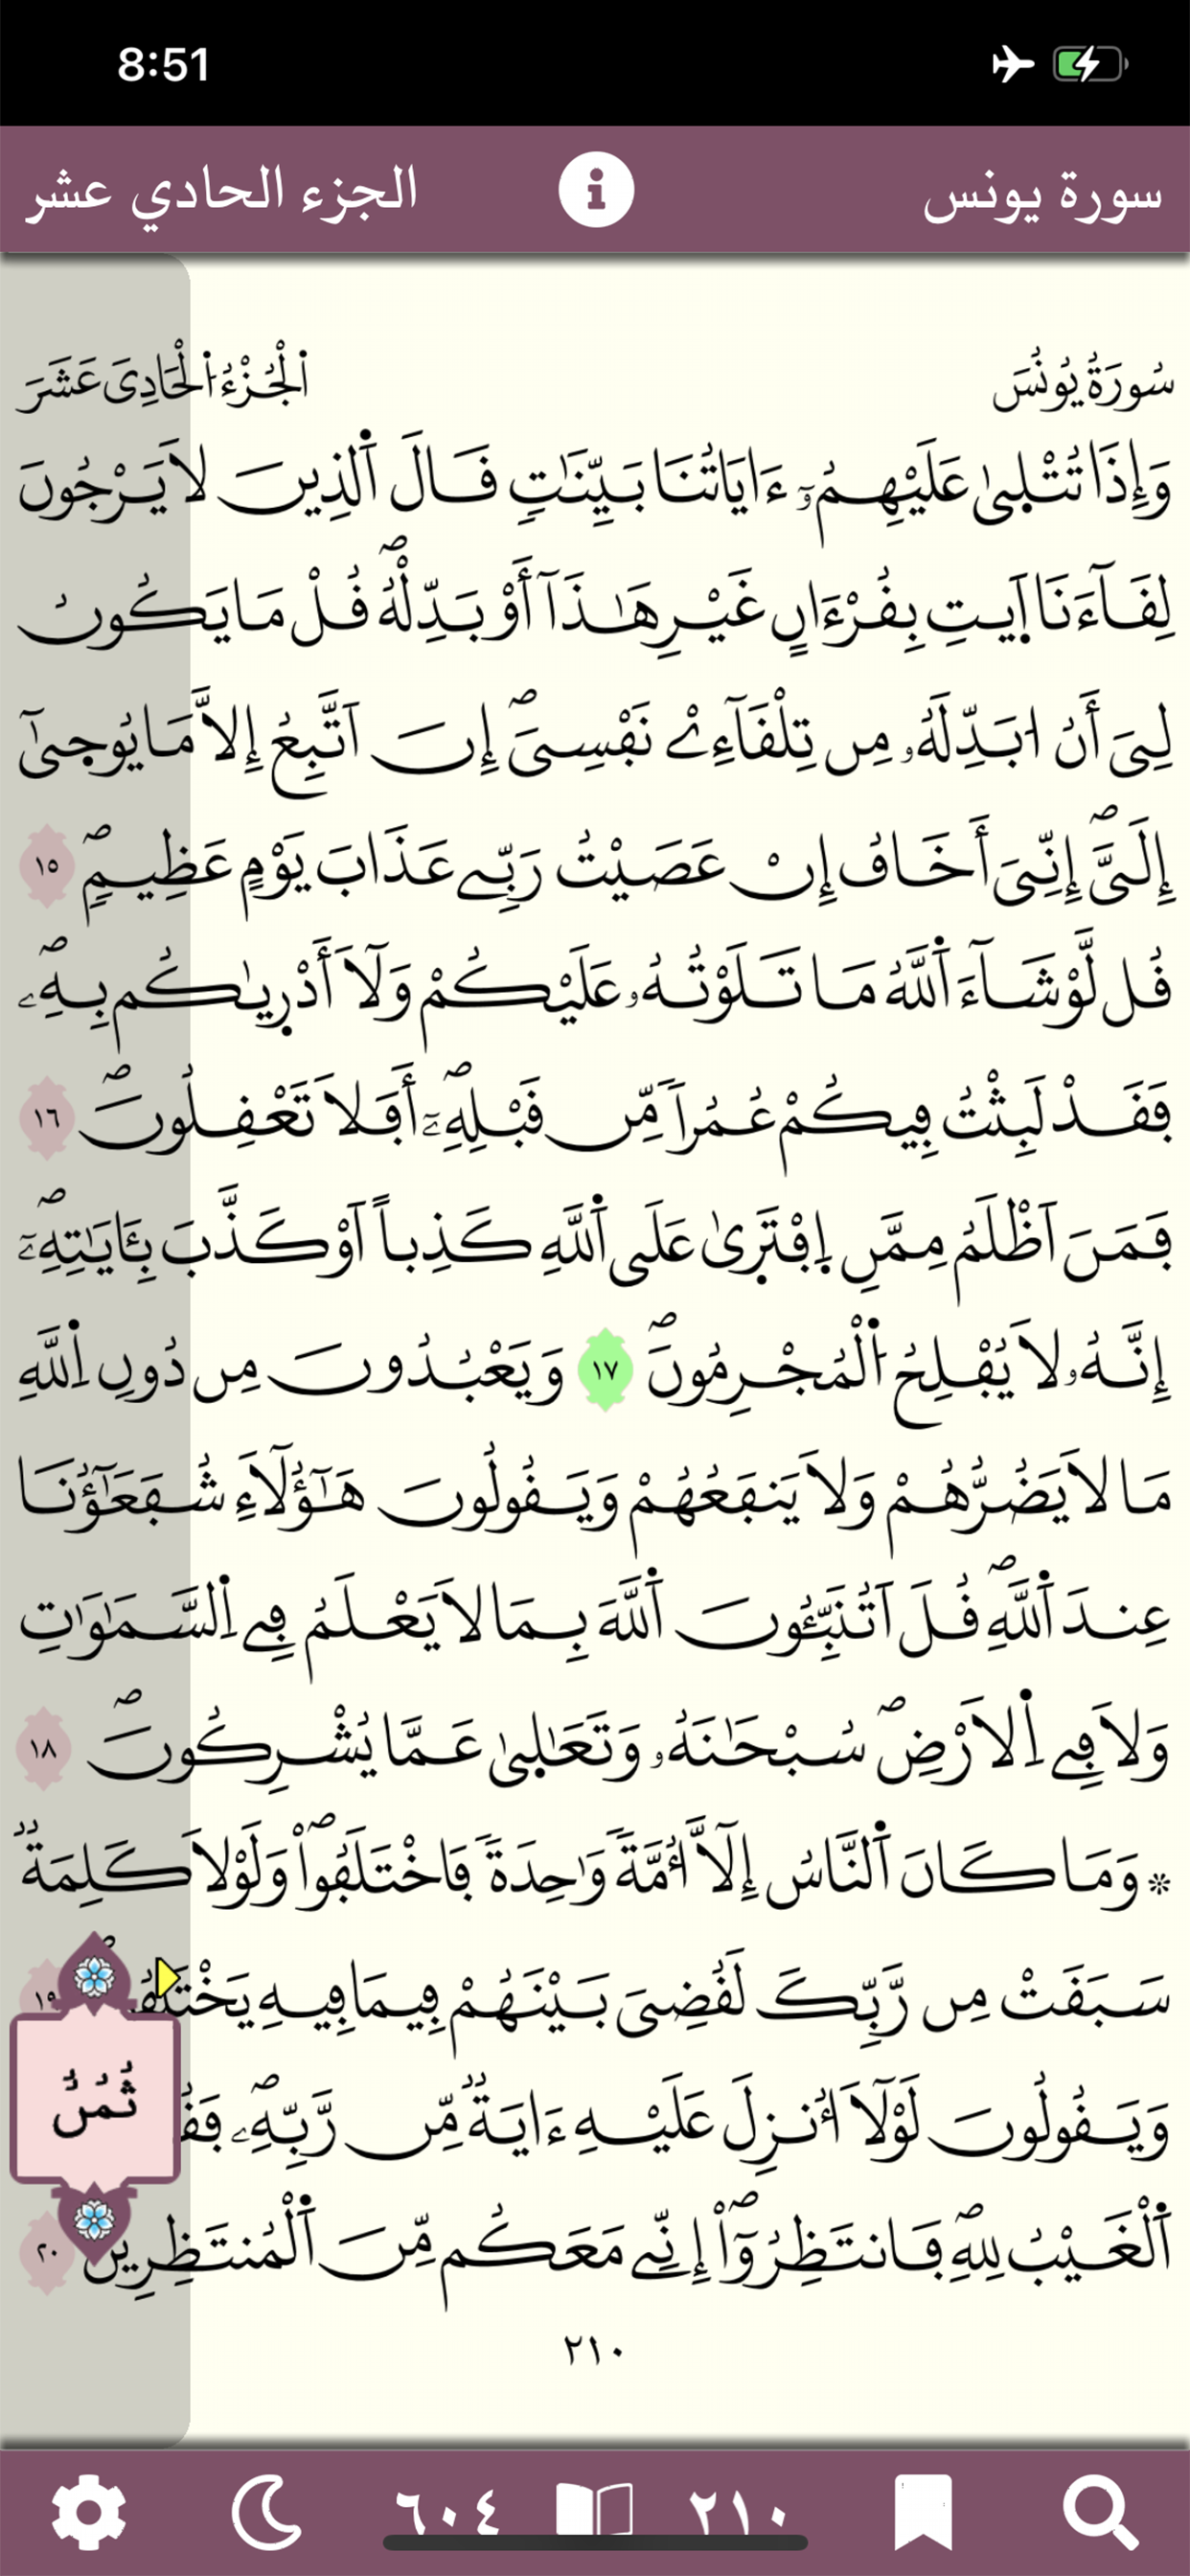 8:51
سورة يونس
الجزء الحادي عشر
سُورَةُ يُونُسَ
اَ۬لْجُزْءُ اُ۬لْحَادِيَ عَشَرَ
وَإِذَا تُتْل۪ىٰ عَلَيْهِمُۥٓ ءَايَاتُنَا بَيِّنَٰتٖ فَالَ اَ۬لذِينَ لَا يَرْجُونَ
لِفَآءَنَا اَ۪يتِ بِفُرْءَانٍ غَيْرِ هَٰذَآ أَوْ بَدِّلْهُۖ فُلْ مَا يَكُونُ
لِيَ أَنُ ا۟بَدِّلَهُۥ مِن تِلْفَآءِےْ نَفْسِيَۖ إِنَ اَتَّبِعُ إِلَّا مَا يُوح۪ىٰٓ
إِلَيَّۖ إِنِّيَ أَخَافُ إِنْ عَصَيْتُ رَبِّے عَذَابَ يَوْمٍ عَظِيمٖۖ ١٥
فُل لَّوْ شَآءَ اَ۬للَّهُ مَا تَلَوْتُهُۥ عَلَيْكُمْ وَلَآ أَدْر۪يٰكُم بِهِۦۖ
فَفَدْ لَبِثْتُ فِيكُمْ عُمُراٗ مِّن فَبْلِهِۦٓۖ أَفَلَا تَعْفِلُونَۖ ١٦
فَمَنَ اَظْلَمُ مِمَّنِ اِ۪فْتَر۪ىٰ عَلَى اَ۬للَّهِ كَذِباً اَوْ كَذَّبَ بِـَٔايَٰتِهِۦٓۖ
إِنَّهُۥ لَا يُفْلِحُ اُ۬لْمُجْرِمُونَۖ ١٧ وَيَعْبُدُونَ مِن دُونِ اِ۬للَّهِ
مَا لَا يَضُرُّهُمْ وَلَا يَنفَعُهُمْ وَيَفُولُونَ هَٰٓؤُلَآءِ شُفَعَٰٓؤُنَا
عِندَ اَ۬للَّهِۖ فُلَ اَتُنَبِّـُٔونَ اَ۬للَّهَ بِمَا لَا يَعْلَمُ فِے اِ۬لسَّمَٰوَٰتِ
وَلَا فِے اِ۬لَارْضِۖ سُبْحَٰنَهُۥ وَتَعَٰل۪ىٰ عَمَّا يُشْرِكُونَۖ ١٨
۞ وَمَا كَانَ اَ۬لنَّاسُ إِلَّآ أُمَّةٗ وَٰحِدَةٗ فَاخْتَلَفُواْۖ وَلَوْلَا كَلِمَةٞ
سَبَفَتْ مِن رَّبِّكَ لَفُضِيَ بَيْنَهُمْ فِيمَا فِيهِ ١٩
وَيَفُولُونَ لَوْلَآ أُنزِلَ عَلَيْهِ ءَايَةٞ مِّن رَّبِّهِۦۖ
ثُمُنٌ
اَ۬لْغَيْبُ لِلهِۖ فَانتَظِرُوٓاْۖ إِنِّے مَعَكُم مِّنَ اَ۬لْمُنتَظِرِينَ ٢٠
٢١٠
٢١٠
٦٠٤